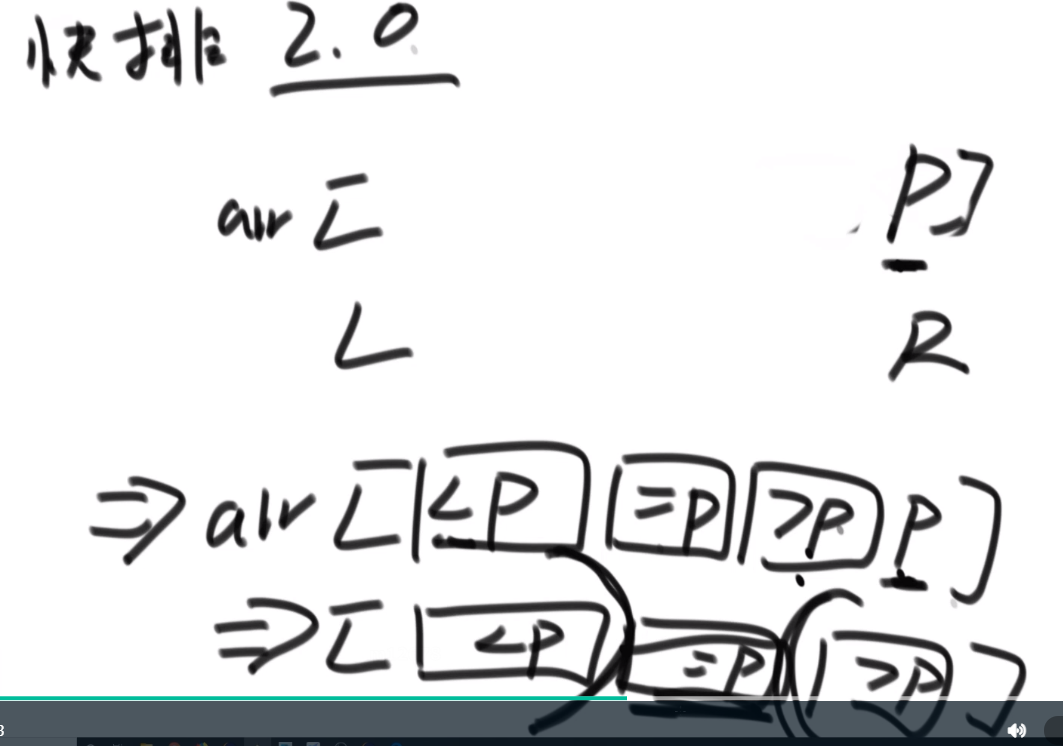 快排 2.0
arr [ P]
L R
⇒ arr [ <P =P >P P ]
⇒ [ <P =P >P ]
3